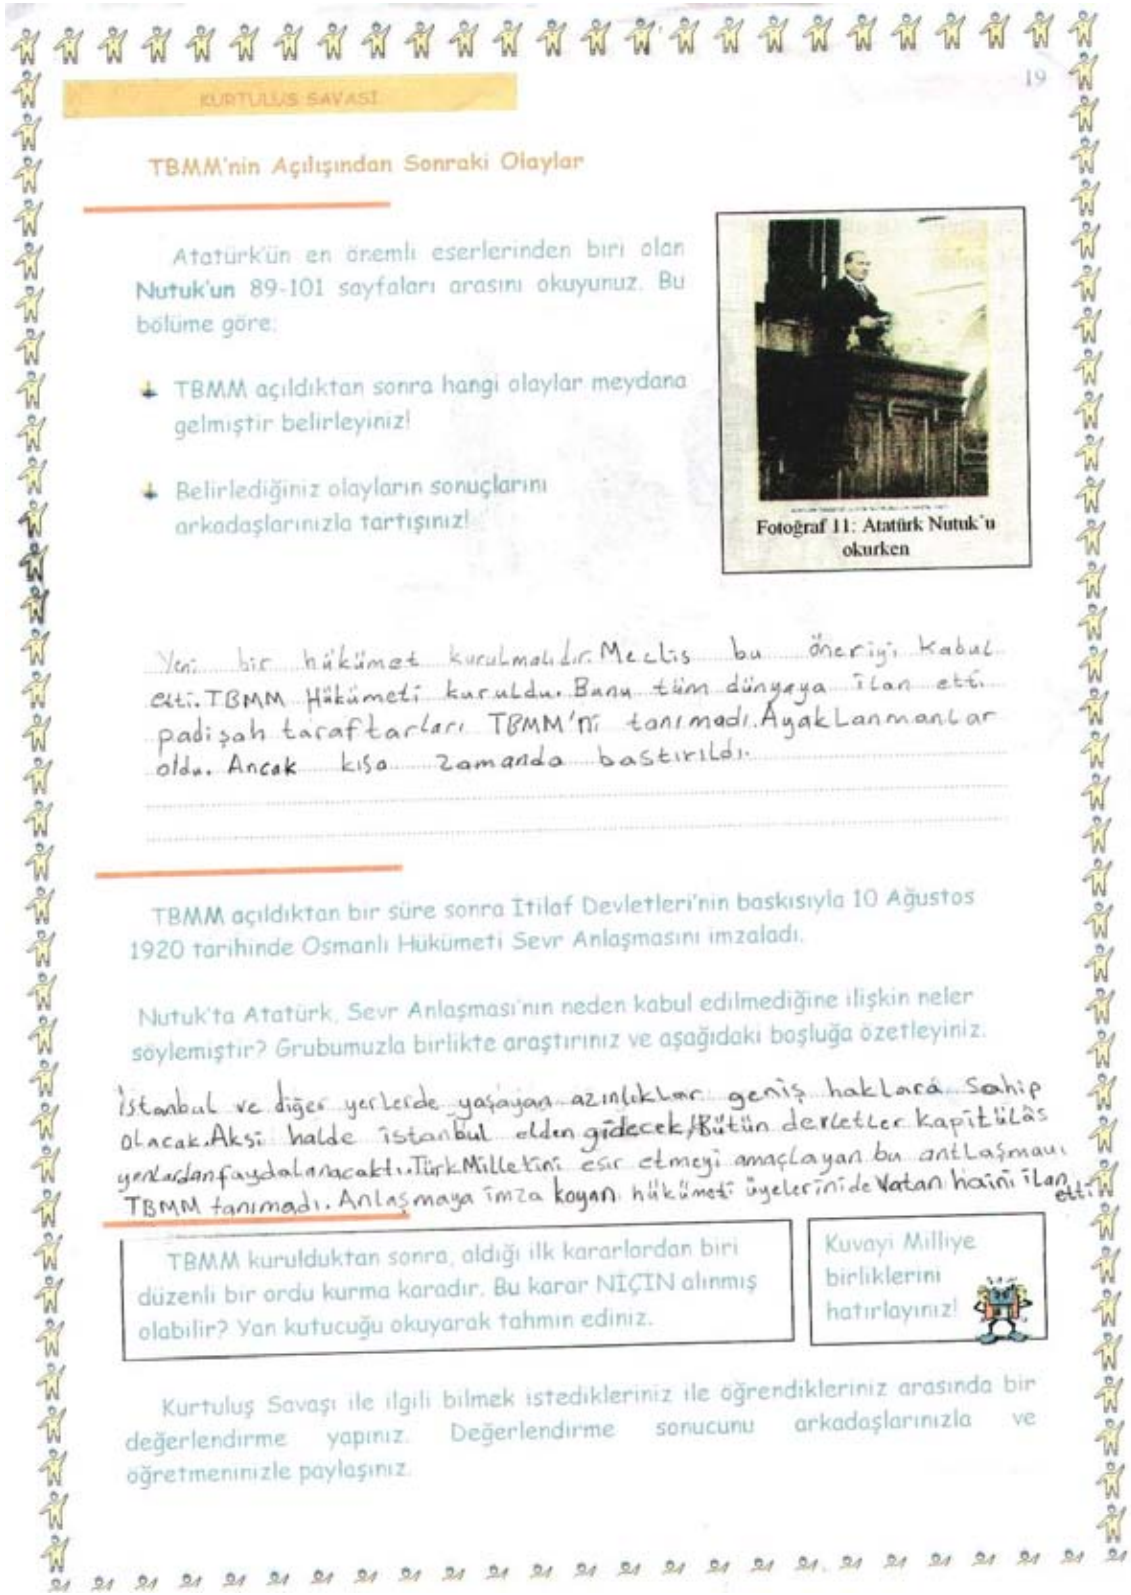 19
KURTULUŞ SAVAŞI
TBMM'nin Açılışından Sonraki Olaylar
Atatürk'ün en önemli eserlerinden biri olan
Nutuk'un 89-101 sayfaları arasını okuyunuz. Bu
bölüme göre;
TBMM açıldıktan sonra hangi olaylar meydana
gelmiştir belirleyiniz!
Belirlediğiniz olayların sonuçlarını
arkadaşlarınızla tartışınız!
Fotoğraf 11: Atatürk Nutuk'u
okurken
Yeni bir hükümet kurulmalıdır. Meclis bu öneriyi Kabul
etti. TBMM Hükümeti kuruldu. Bunu tüm dünyaya ilan etti
padişah taraftarları TBMM'ni tanımadı. Ayaklanmanlar
oldu. Ancak kısa zamanda bastırıldı.
TBMM açıldıktan bir süre sonra İtilaf Devletleri'nin baskısıyla 10 Ağustos
1920 tarihinde Osmanlı Hükümeti Sevr Anlaşmasını imzaladı.
Nutuk'ta Atatürk, Sevr Anlaşması'nın neden kabul edilmediğine ilişkin neler
söylemiştir? Grubumuzla birlikte araştırınız ve aşağıdaki boşluğa özetleyiniz.
İstanbul ve diğer yerlerde yaşayan azınlıklar geniş haklara Sahip
olacak. Aksi halde istanbul elden gidecek, Bütün devletler kapitülâs
yonlardan faydalanacaktı. Türk Milletini esir etmeyi amaçlayan bu antlaşmayı
TBMM tanımadı. Anlaşmaya imza koyan hükümeti üyelerini de Vatan haini ilan
etti
TBMM kurulduktan sonra, aldığı ilk kararlardan biri
düzenli bir ordu kurma karadır. Bu karar NİÇİN alınmış
olabilir? Yan kutucuğu okuyarak tahmin ediniz.
Kuvayi Milliye
birliklerini
hatırlayınız!
Kurtuluş Savaşı ile ilgili bilmek istedikleriniz ile öğrendikleriniz arasında bir
değerlendirme yapınız. Değerlendirme sonucunu arkadaşlarınızla ve
öğretmeninizle paylaşınız.